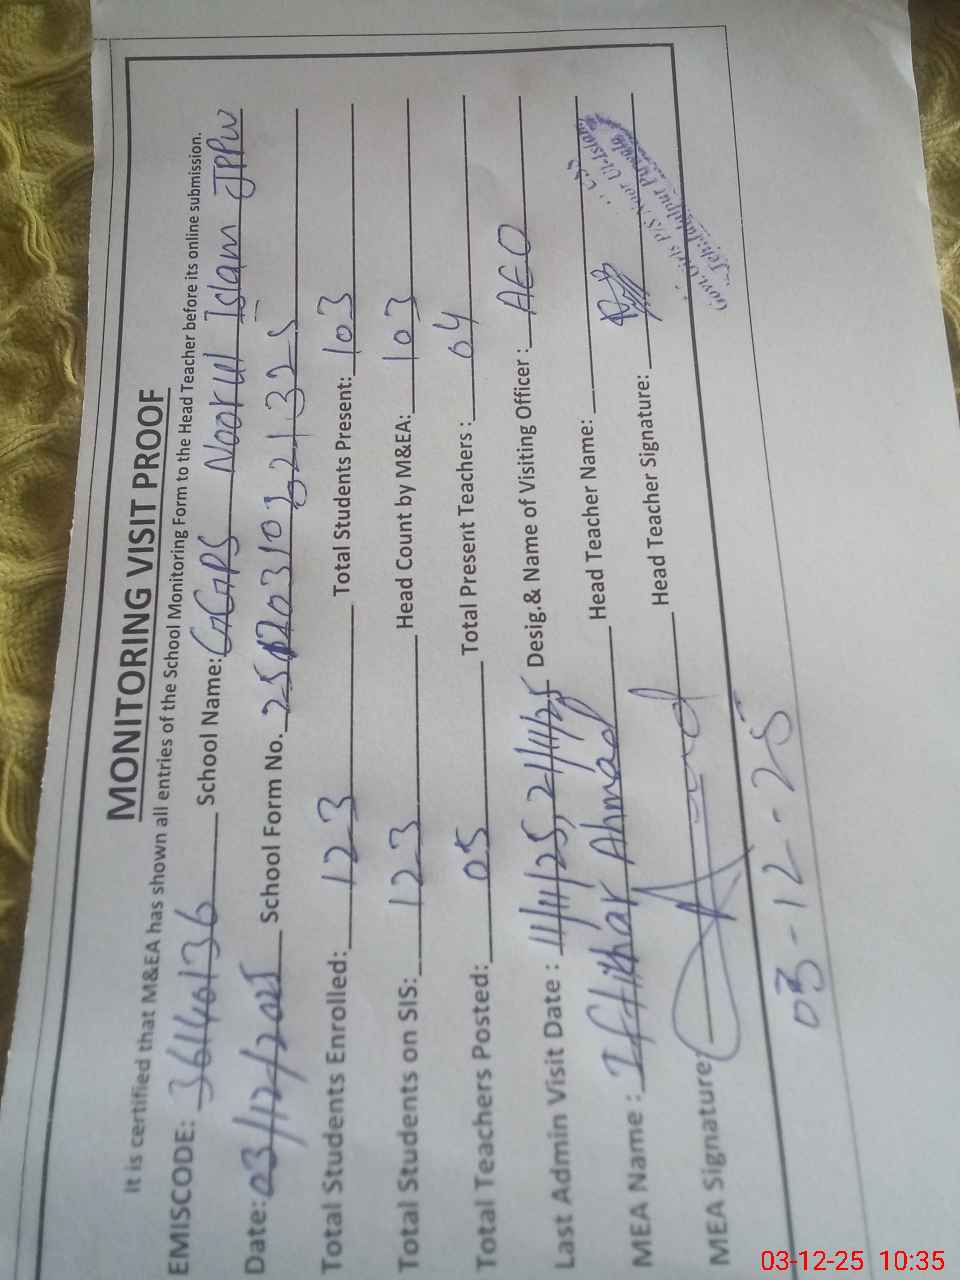 MONITORING VISIT PROOF
It is certified that M&EA has shown all entries of the School Monitoring Form to the Head Teacher before its online submission.
EMISCODE: 36140136 School Name: GGPS Noorul Islam JPPW
Date: 03/12/2025 School Form No.
Total Students Enrolled: 123 Total Students Present: 103
Total Students on SIS: 123 Head Count by M&EA: 103
Total Teachers Posted: 05 Total Present Teachers : 04
Last Admin Visit Date : 11/11/25, 21/11/25 Desig.& Name of Visiting Officer : AEO
MEA Name : Iftikhar Ahmad Head Teacher Name:
MEA Signature: Head Teacher Signature:
Govt. Girls P/S Noor Ul-Islam
03-12-25
03-12-25 10:35